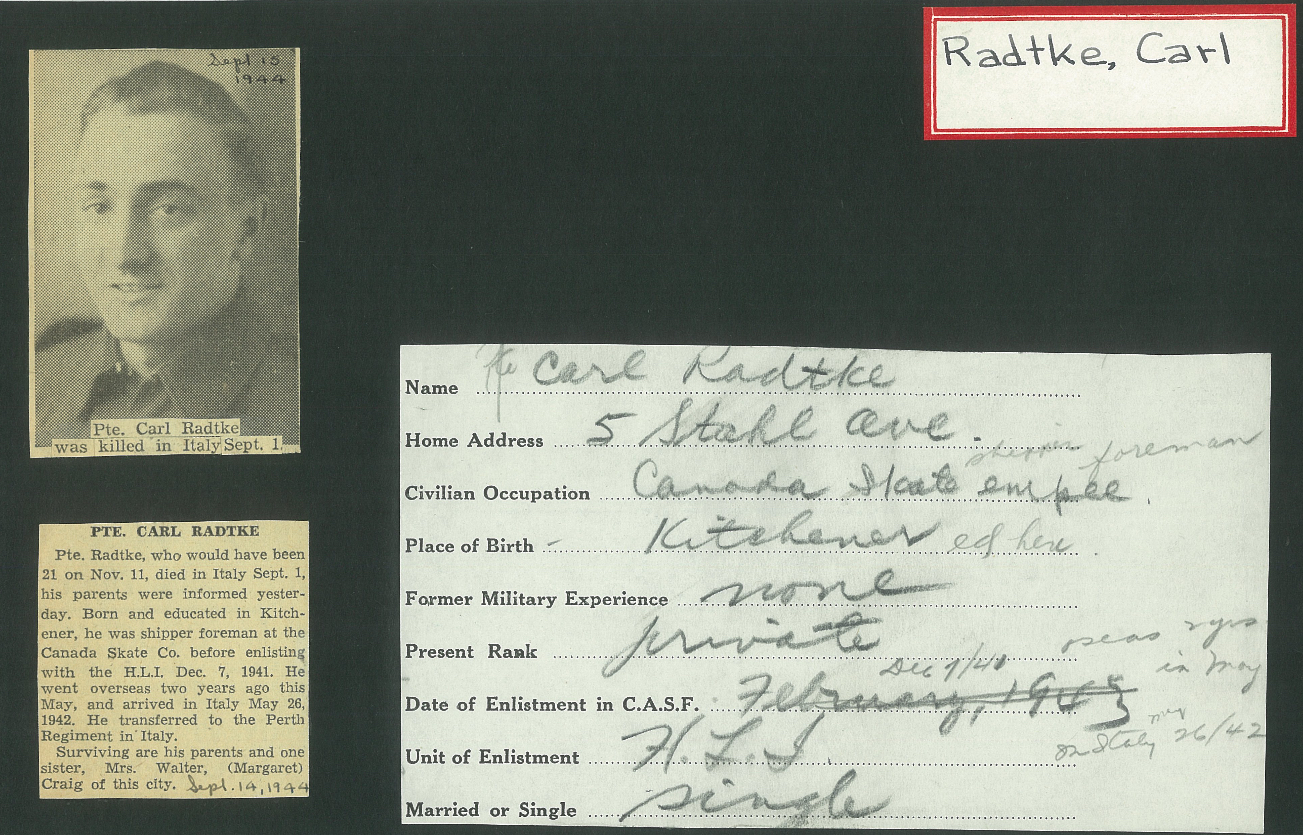 Sept 15
1944
Pte. Carl Radtke
was killed in Italy Sept. 1
PTE. CARL RADTKE
Pte. Radtke, who would have been
21 on Nov. 11, died in Italy Sept. 1,
his parents were informed yester-
day. Born and educated in Kitch-
ener, he was shipper foreman at the
Canada Skate Co. before enlisting
with the H.L.I. Dec. 7, 1941. He
went overseas two years ago this
May, and arrived in Italy May 26,
1942. He transferred to the Perth
Regiment in Italy.
Surviving are his parents and one
sister, Mrs. Walter, (Margaret)
Craig of this city. Sept. 14, 1944
Radtke, Carl
Name Pte Carl Radtke
Home Address 5 Stahl Ave.
foreman
Civilian Occupation Canada Skate emplee.
Place of Birth - Kitchener ed here.
Former Military Experience none
Present Rank private
oseas 2 yrs
in May
Dec 7/41
Date of Enlistment in C.A.S.F. February, 1943
may
in Italy 26/42
Unit of Enlistment H.L.I.
Married or Single single